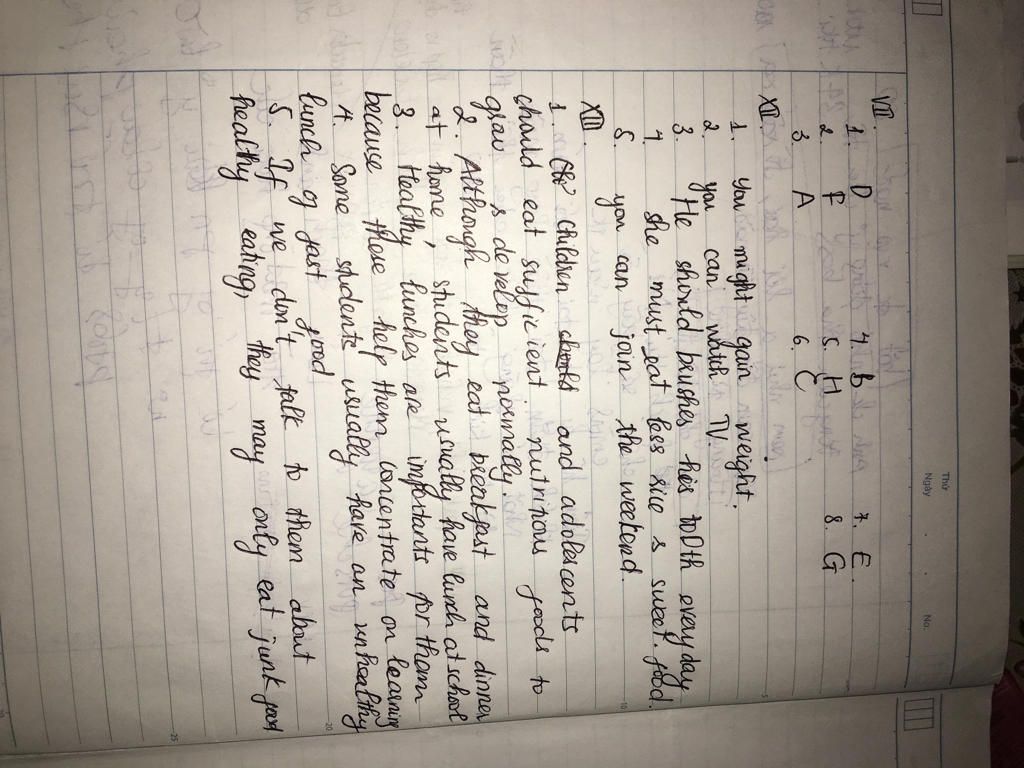 Thứ
Ngày
No.
VII.
1. D 4. b 7. E.
2. F 5. H 8. G
3. A 6. C
XII
1. you might gain weight.
2 you can watch TV.
3. He should brushes his tooth every day
4 she must eat less rice & sweet food.
5. you can join the weekend.
XIII.
1. children should and adolescents
should eat sufficient nutritious foods to
grow & develop normally.
2. Although they eat breakfast and dinner
at home, students usually have lunch at school
3. Healthy lunches are importants for them
because these help them concentrate on learning
4. Some students usually have an unhealthy
lunch of fast food
5. If we don't talk to them about
healthy eating, they may only eat junk food
5
10
20
25